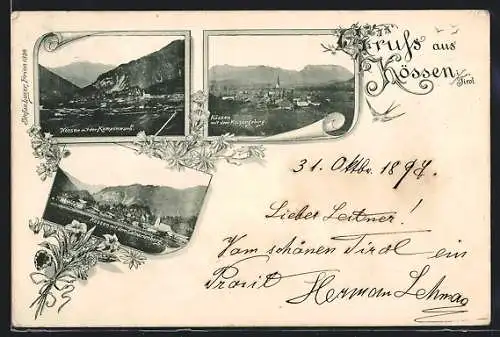 Gruss aus
Kössen.
Tirol
Kössen mit dem
Kössen
mit dem Kaisergebirg
31. Oktbr. 1897.
Lieber Leitner!
Vom schönen Tirol ein
Prosit Herman Lehma